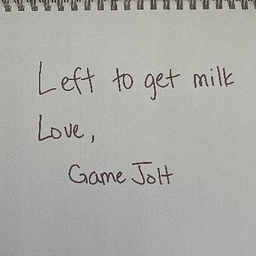 Left to get milk
Love,
Game Jolt